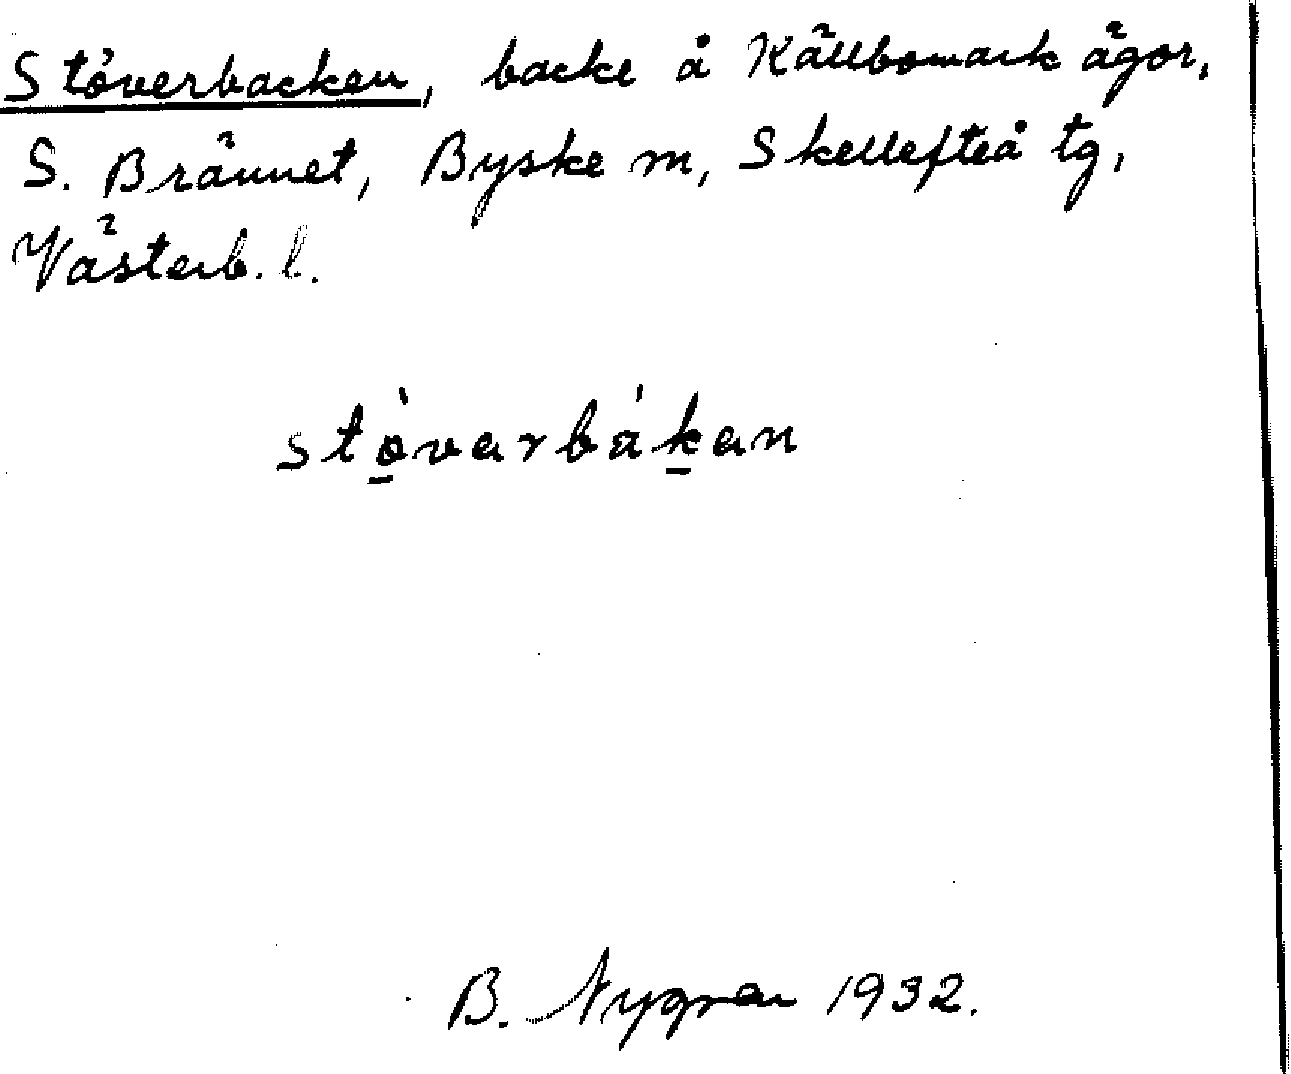 Stöverbacken, backe å Källbomark ägor,
S. Brännet, Byske sn, Skellefteå tg,
Västerb. l.
stö̀varbákan
B. Nygren 1932.